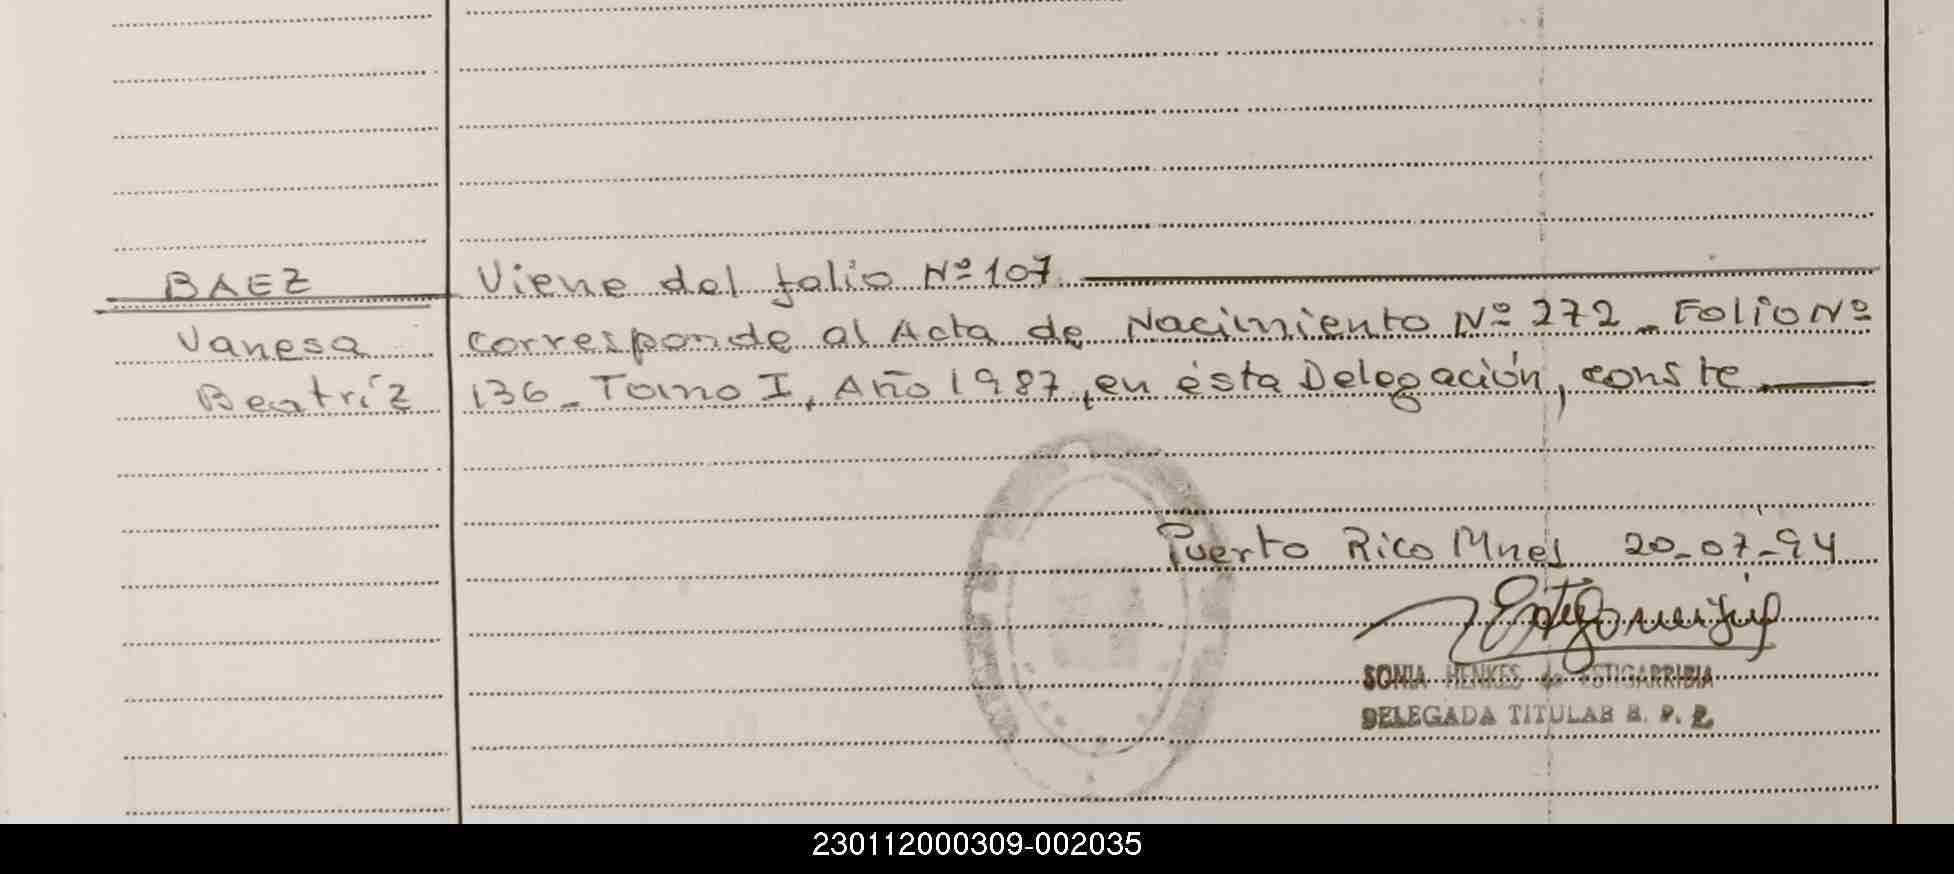 BAEZ
Vanesa
Beatríz
Viene del folio Nº 107
corresponde al Acta de Nacimiento Nº 272_ Folio Nº
136_ Tomo I, Año 1987, en ésta Delegación, conste
Puerto Rico Mnes 20-07-94
SONIA HENKES de ESTIGARRIBIA
DELEGADA TITULAR R. P. P.
230112000309-002035